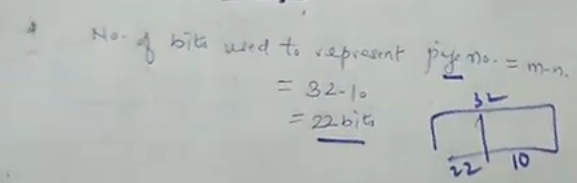 No. of bits used to represent page no. = m-n.
= 32-10
= 22 bits
32
22 10